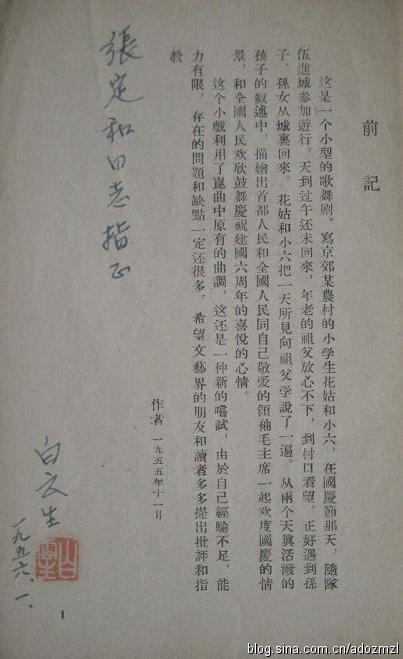 前記
这是一个小型的歌舞剧。寫京郊某農村的小学生花姑和小六，在國慶節那天，隨隊
伍進城参加遊行，天到过午还未回來，年老的祖父放心不下，到付口看望，正好遇到孫
子、孫女从城裏回來。花姑和小六把一天所見向祖父学說了一遍。从兩个天眞活潑的
孩子的叙述中，描繪出首都人民和全國人民同自己敬愛的領袖毛主席一起欢度國慶的情
景，和全國人民欢欣鼓舞慶祝建國六周年的喜悅的心情。
这个小戲利用了崑曲中原有的曲調，这还是一种新的嚐試，由於自己經驗不足，能
力有限，存在的問題和缺點一定还很多，希望文藝界的朋友和讀者多多提出批評和指
教
作者 一九五五年十一月
張定和同志指正
白云生
一九五六、一、
1
blog.sina.com.cn/adozmzl